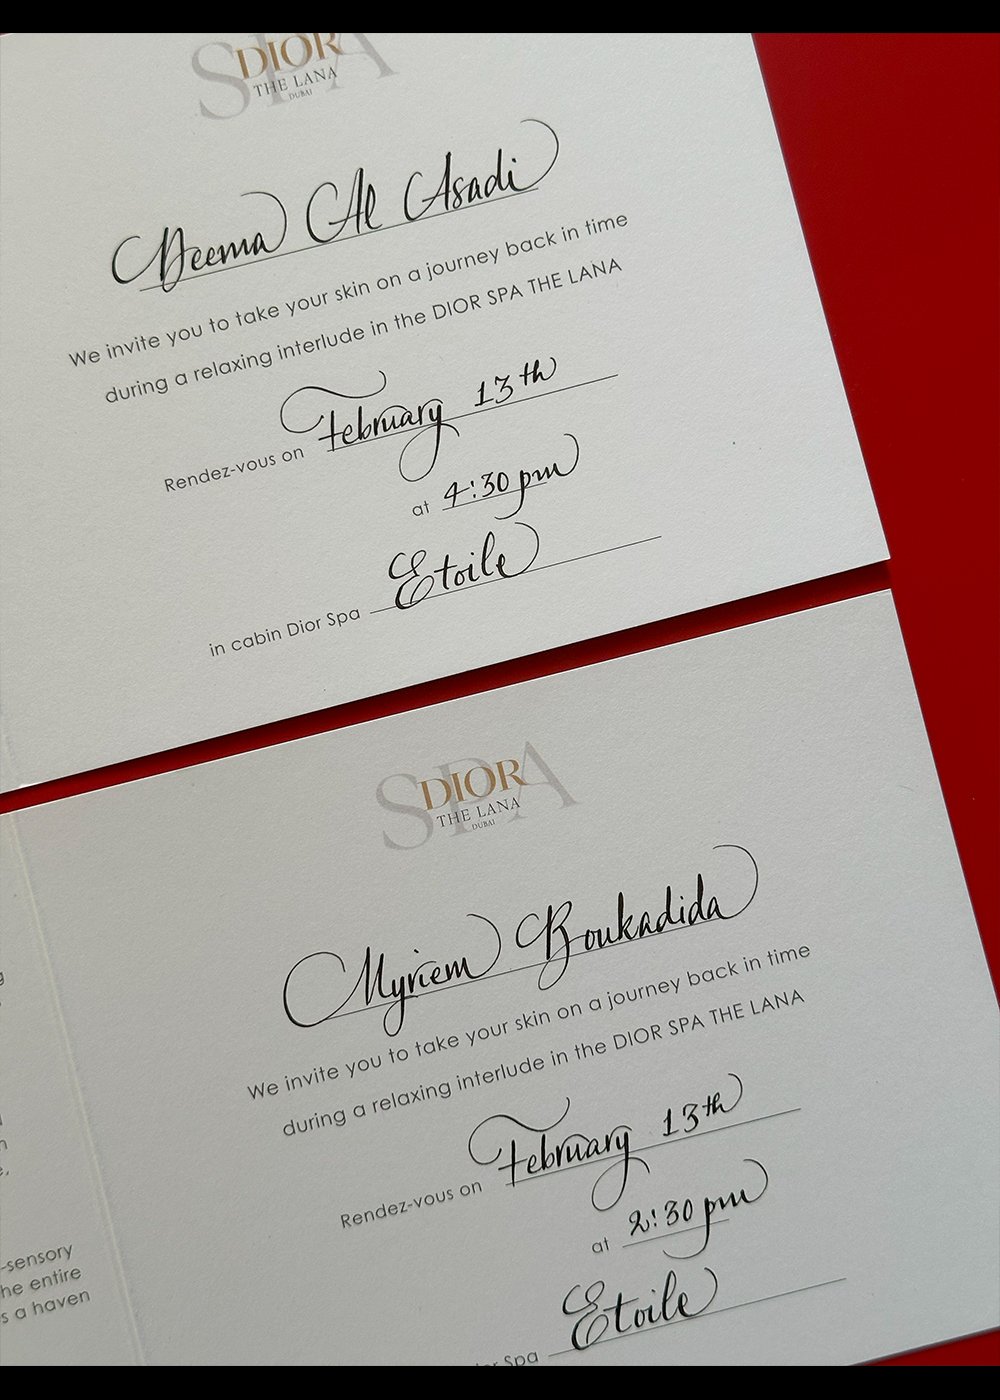 SPA
DIOR
THE LANA
DUBAI
Deema Al Asadi
We invite you to take your skin on a journey back in time
during a relaxing interlude in the DIOR SPA THE LANA
Rendez-vous on February 13th
at 4:30 pm
in cabin Dior Spa Etoile
SPA
DIOR
THE LANA
DUBAI
Myriem Boukadida
We invite you to take your skin on a journey back in time
during a relaxing interlude in the DIOR SPA THE LANA
Rendez-vous on February 13th
at 2:30 pm
Spa Etoile
-sensory
he entire
s a haven